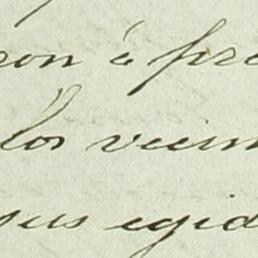 ron á pre
los vecin
sus egid